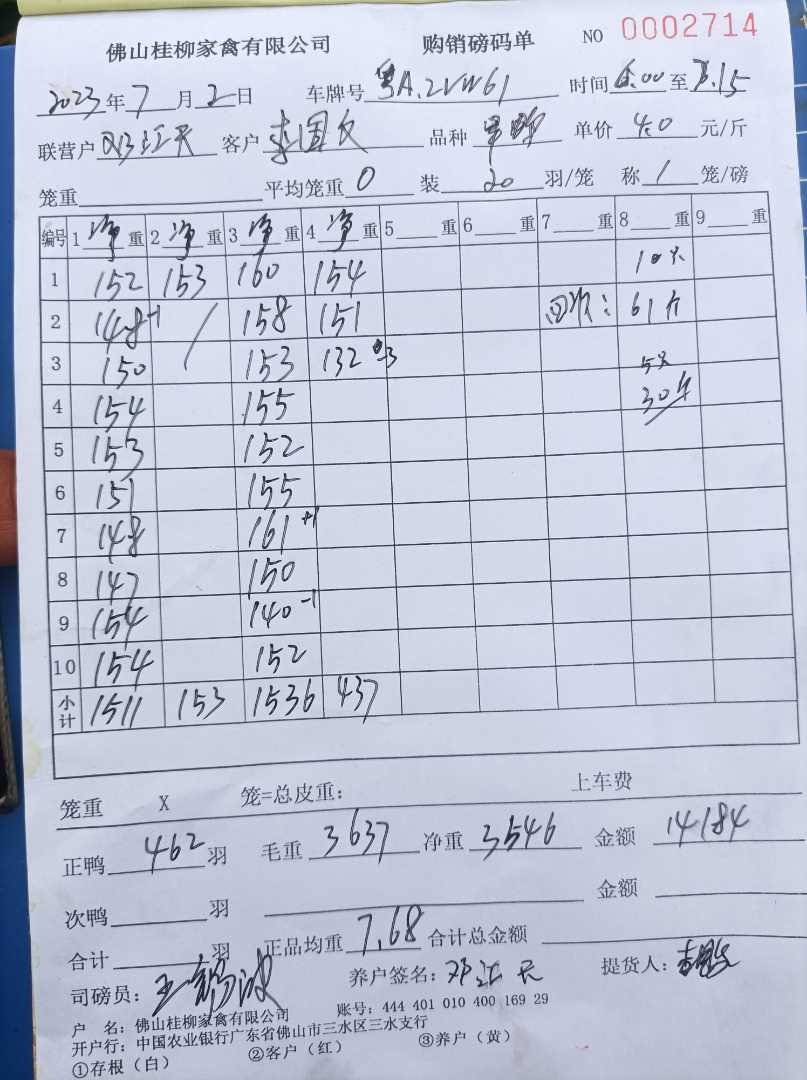 佛山桂柳家禽有限公司 购销磅码单 NO 0002714
2023年7月2日 车牌号 粤A.2VW61 时间 6.00 至 7.15
联营户 邓江天 客户 品种 单价 4.0 元/斤
笼重 平均笼重 0 装 20 羽/笼 称 1 笼/磅
编号 1 净 重 2 净 重 3 净 重 4 净 重 5 重 6 重 7 重 8 重 9 重
1 152 153 160 154 10只
2 148-1 / 158 151 回次: 61斤
3 150 153 132 3 5只
4 154 155 30斤
5 153 152
6 151 155
7 148 161+1
8 147 150
9 154 140-1
10 154 152
小计 1511 153 1536 437
笼重 X 笼=总皮重: 上车费
正鸭 462 羽 毛重 3637 净重 3546 金额 14184
次鸭 羽 金额
合计 羽 正品均重 7.68 合计总金额
司磅员: 养户签名: 邓江天 提货人:
户 名: 佛山桂柳家禽有限公司 账号: 444 401 010 400 169 29
开户行: 中国农业银行广东省佛山市三水区三水支行
①存根(白) ②客户(红) ③养户(黄)